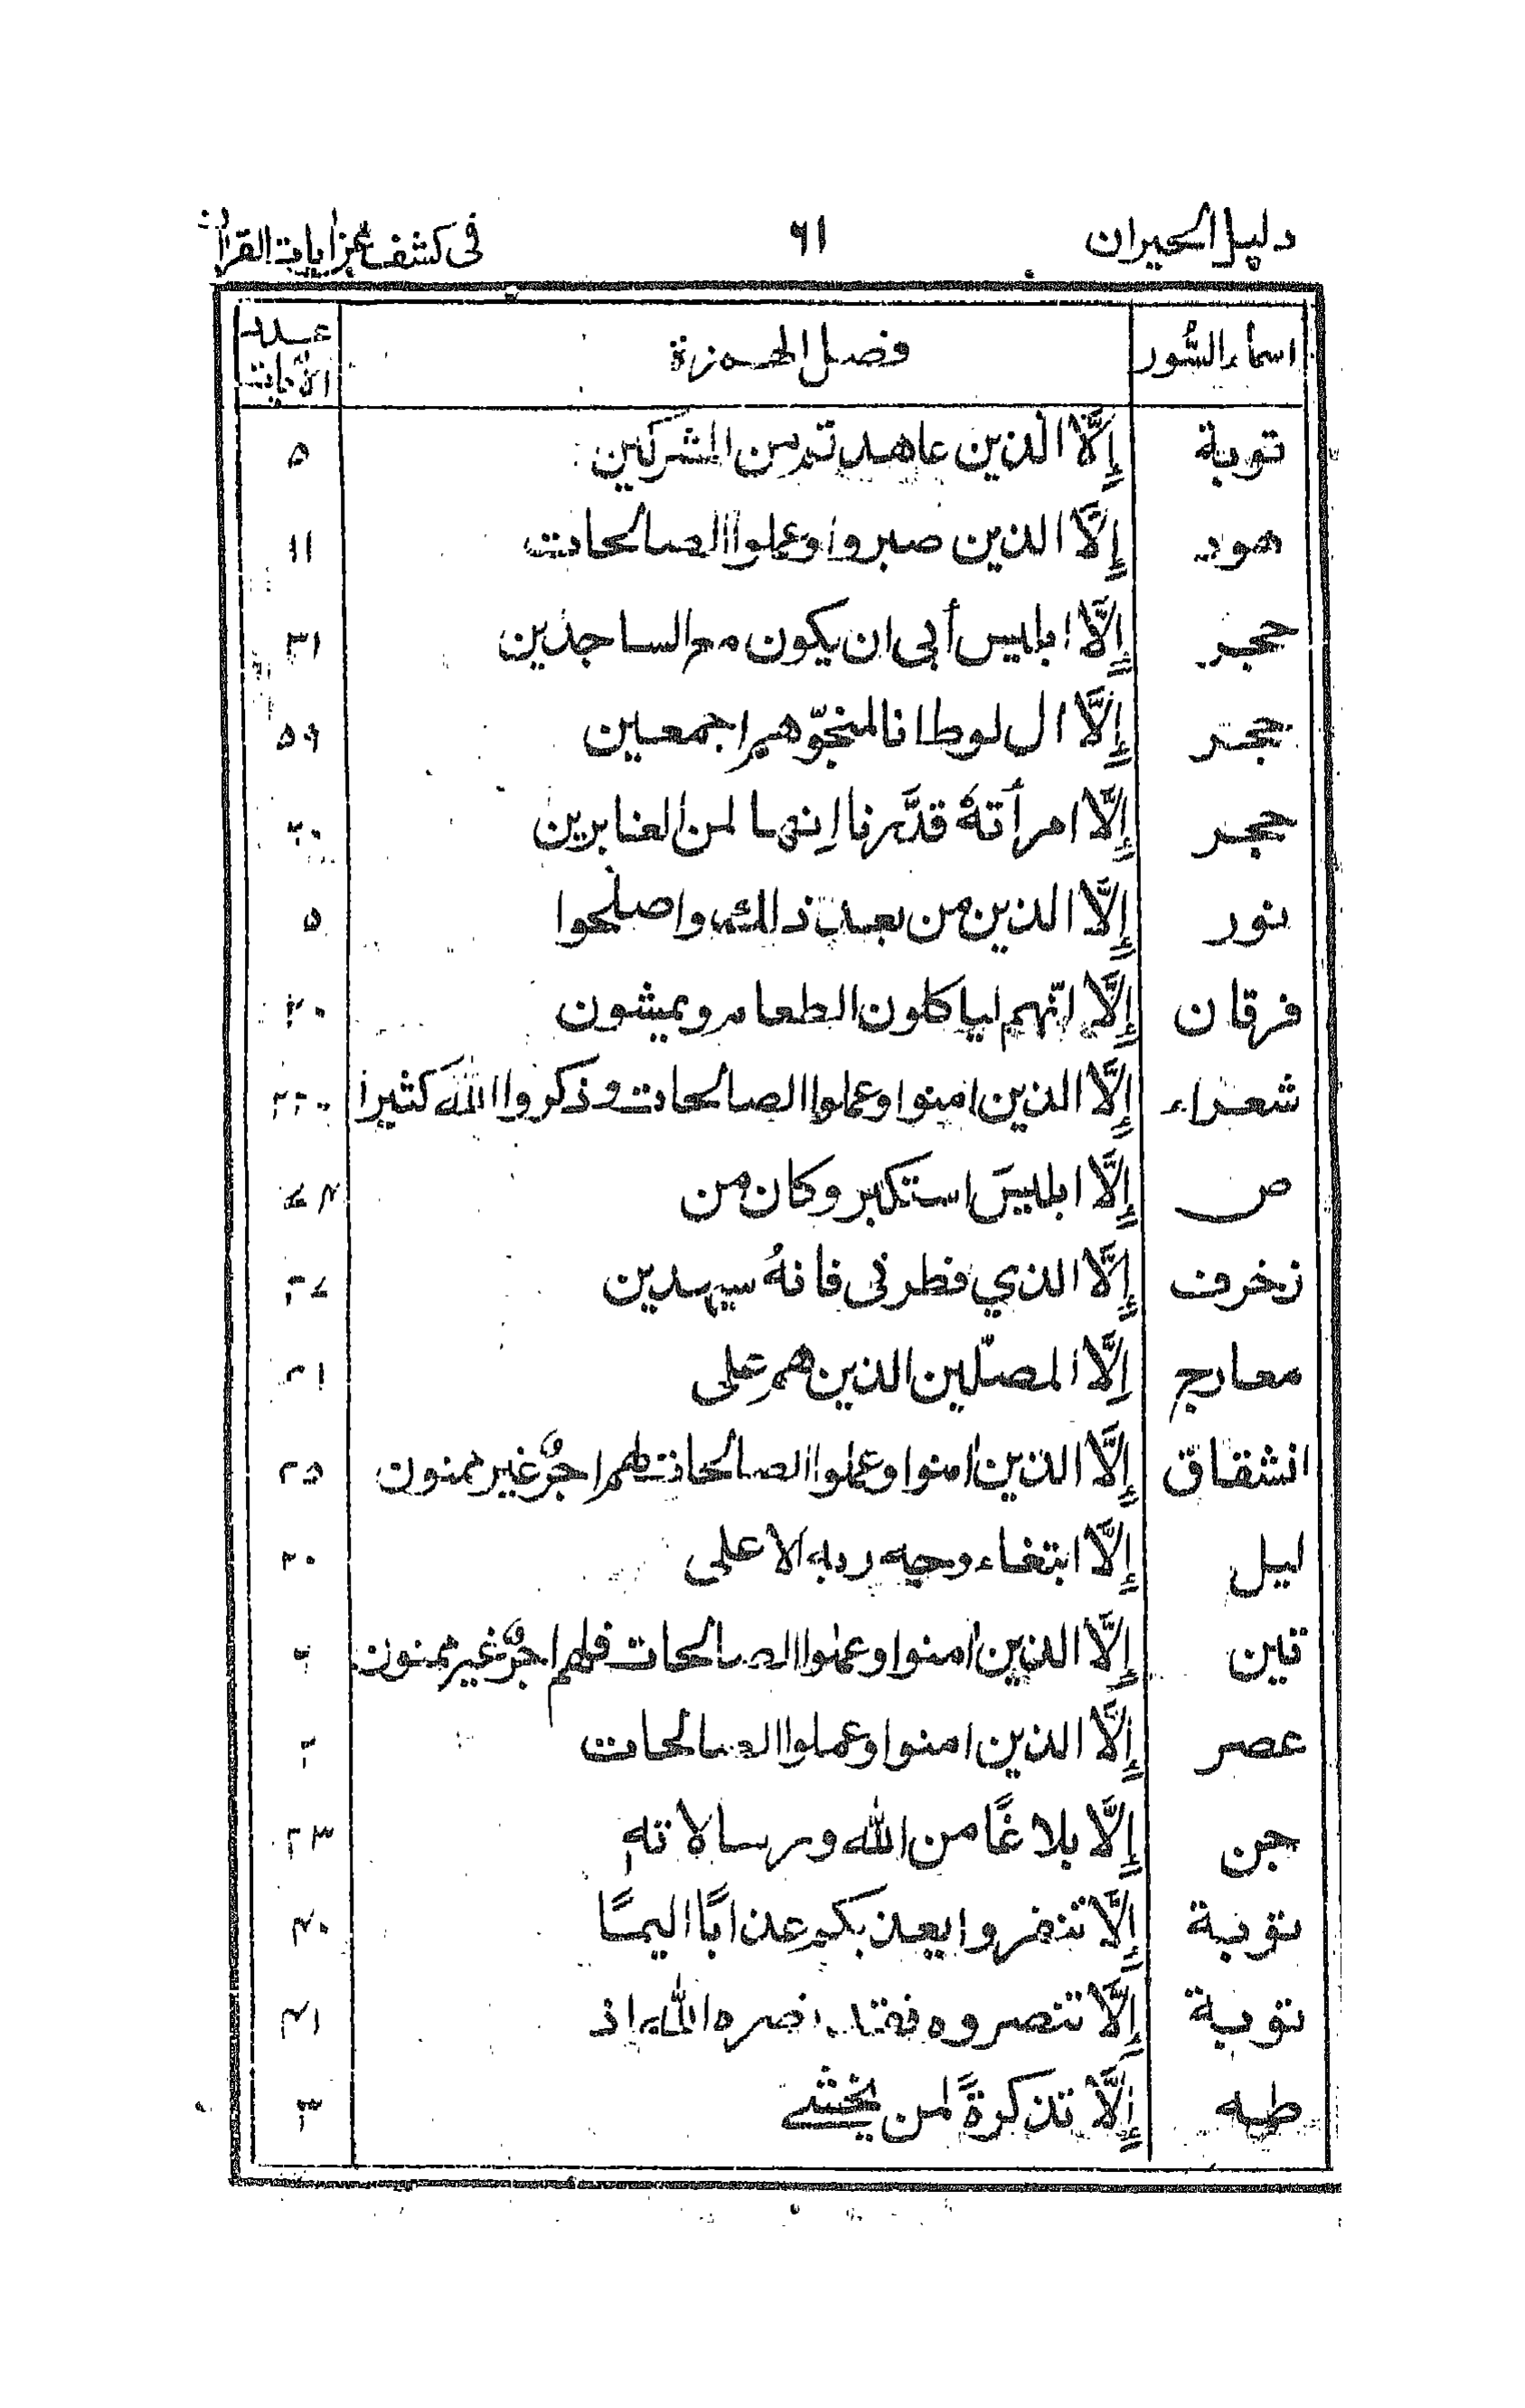 دليل الحيران ٦١ في كشف عن آيات القرآن
اسماء السُّور فصل الهمزة عدد الآيات
توبة إِلَّا الذين عاهدتم من المشركين ٥
هود إِلَّا الذين صبروا وعملوا الصالحات ١١
حجر إِلَّا ابليس أبى ان يكون مع الساجدين ٣١
حجر إِلَّا ال لوط انا لمنجّوهم اجمعين ٥٩
حجر إِلَّا امرأتهُ قدَّرنا اِنها لمن الغابرين
نور إِلَّا الذين من بعد ذلك واصلحوا ٥
فرقان إِلَّا انّهم لياكلون الطعام ويمشون ٢٠
شعراء إِلَّا الذين امنوا وعملوا الصالحات وذكروا الله كثيرا
ص إِلَّا ابليسَ استكبر وكان من ٧٤
زخرف إِلَّا الذي فطرني فانهُ سيهدين ٢٧
معارج اِلَّا المصلّين الذين هم على ٢١
انشقاق إِلَّا الذين امنوا وعملوا الصالحات لهم اجرٌ غير ممنون ٢٥
ليل إِلَّا ابتغاء وجه ربه الاعلى ٢٠
تين إِلَّا الذين امنوا وعملوا الصالحات فلهم اجرٌ غير ممنون ٦
عصر إِلَّا الذين امنوا وعملوا الصالحات ٢
جن إِلَّا بلاغًا من الله ورسالاته ٢٣
توبة إِلَّا تنفروا يعذبكم عذابًا اليمًا ٤٠
توبة إِلَّا تنصروه فقد نصره الله اذ ٤١
طه إِلَّا تذكرةً لمن يخشے ٣